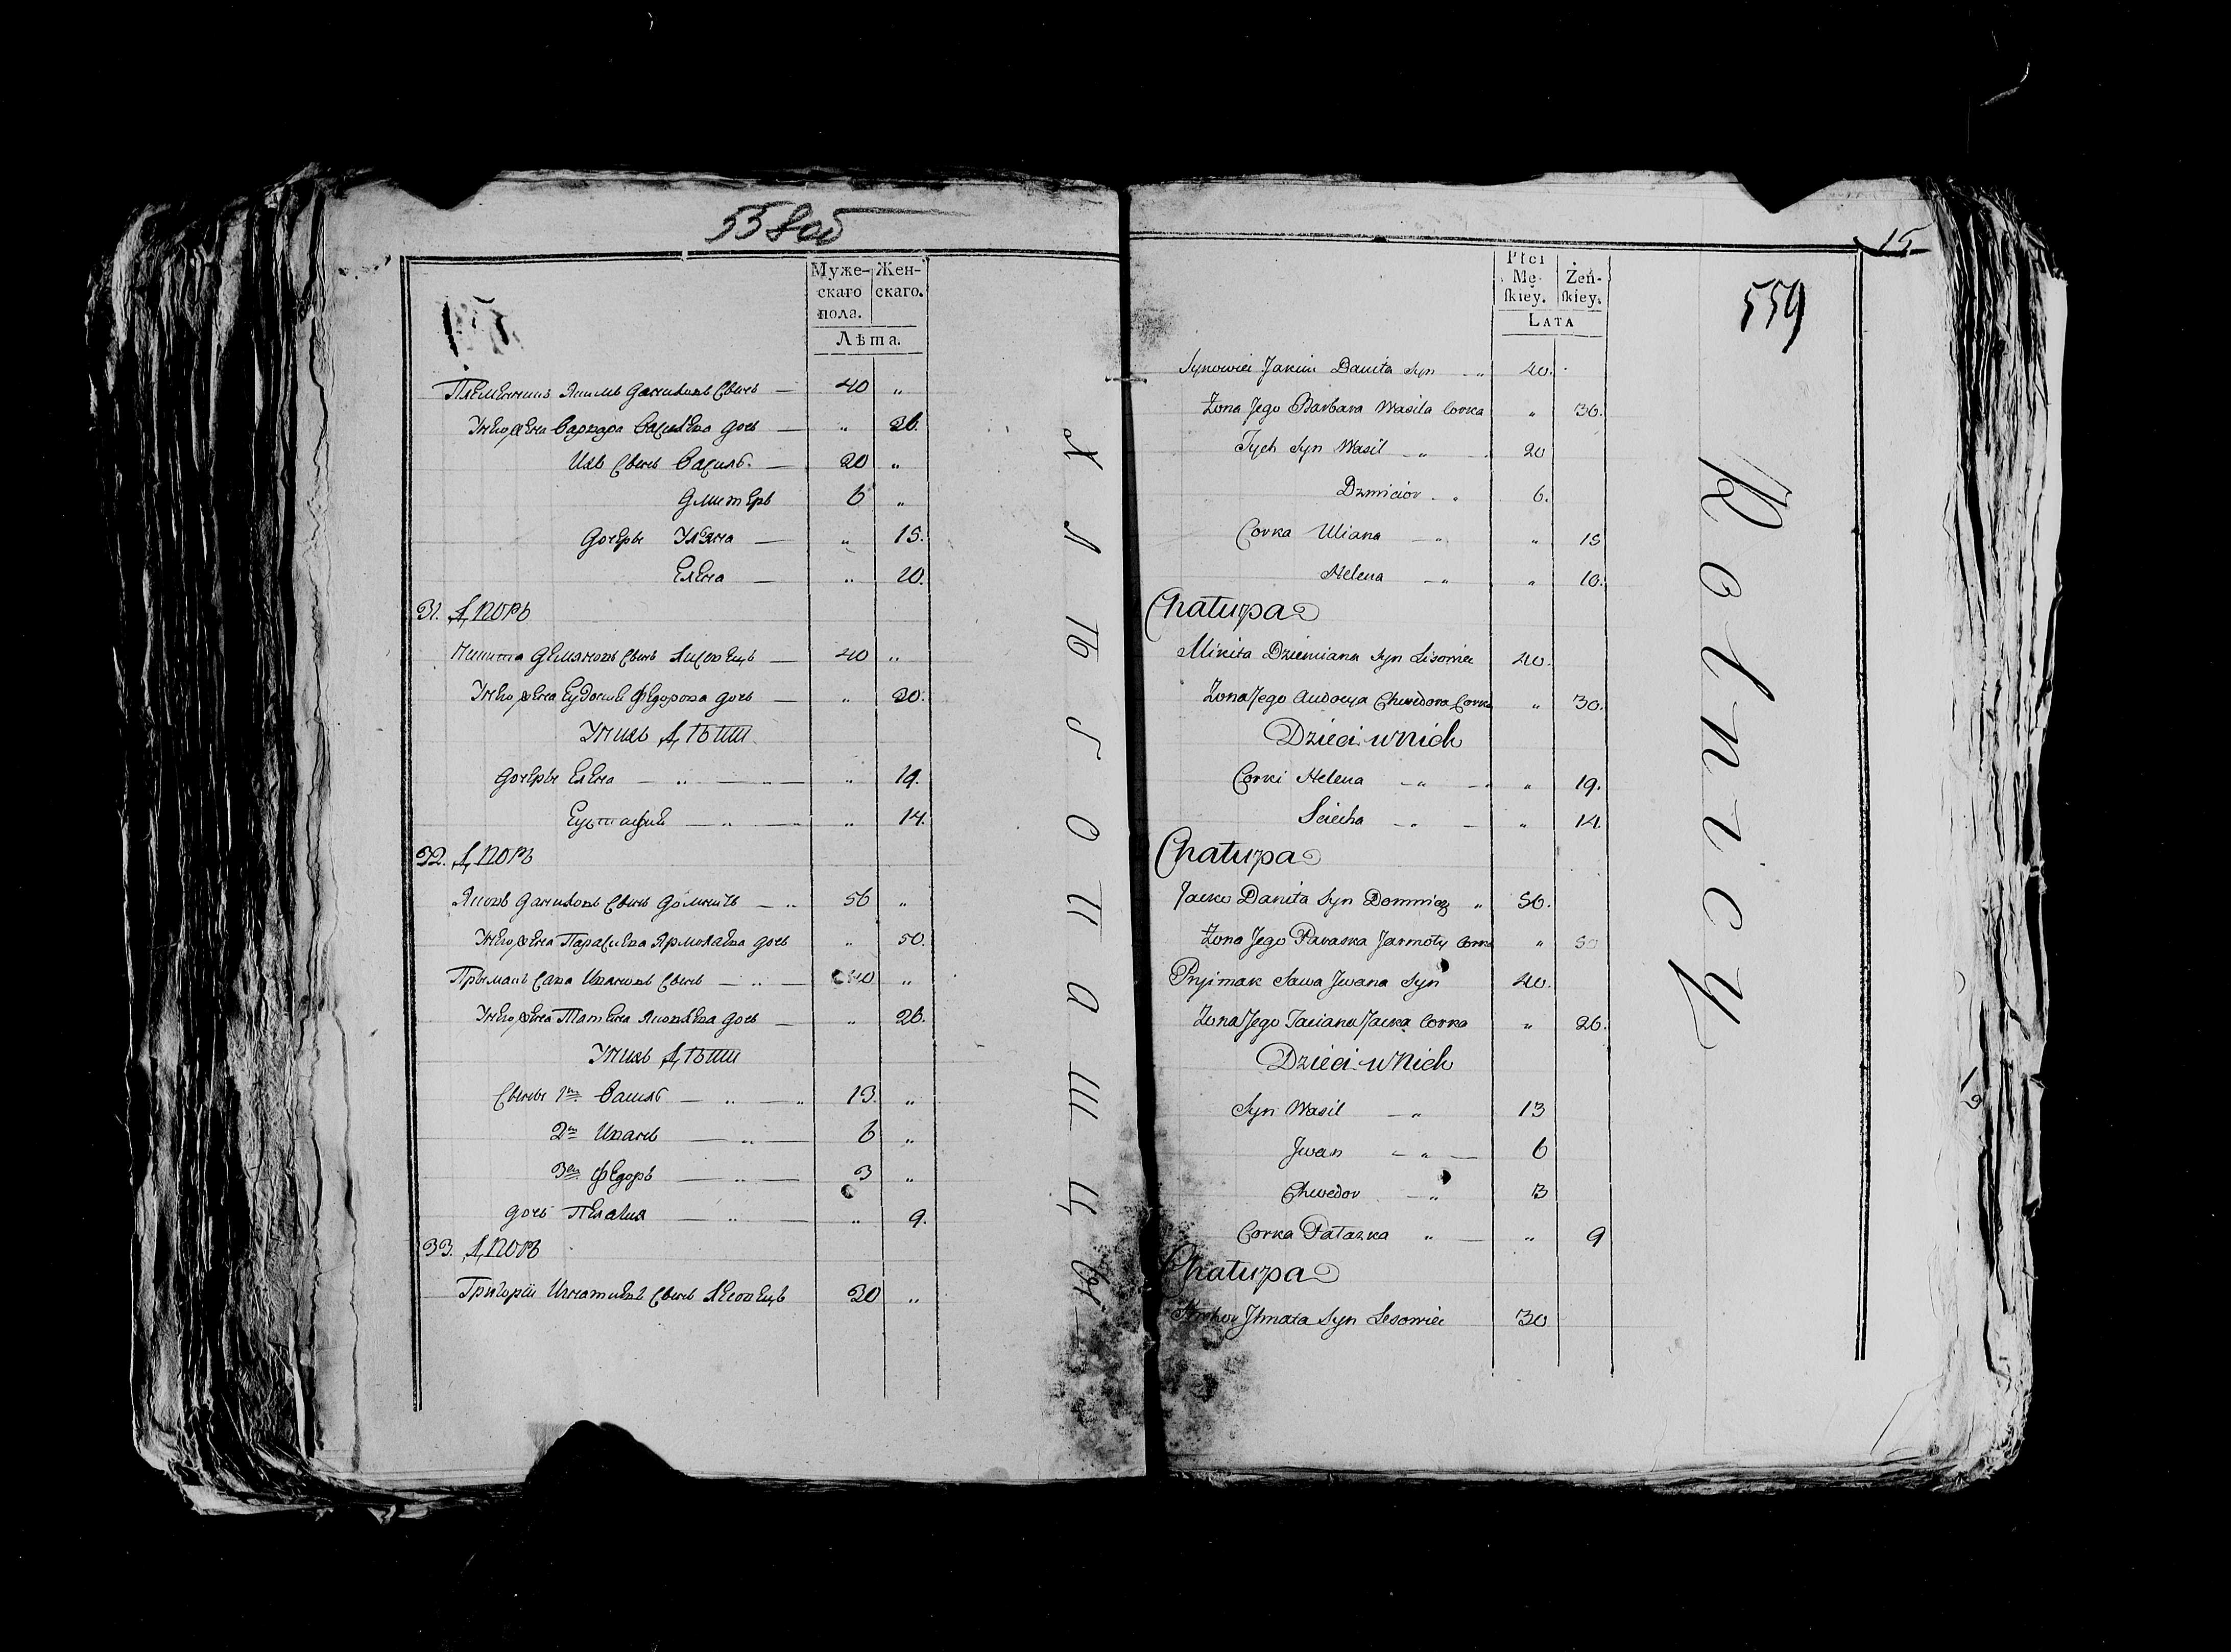 558 об
Муже-
скаго
пола.
Жен-
скаго.
Лѣта.
Племенникъ Якимъ Даниловъ сынъ — 40 „
У него жена Варвара Васильева дочь — „ 36.
Ихъ сынъ Василь. — 20 „
Дмитеръ 6 „
Дочеры Ульяна — „ 15.
Елена — „ 10.
31. Дворъ
Никита Демяновъ сынъ Лисовецъ — 40 „
У него жена Еудокия Федорова дочь — „ 30.
У нихъ дѣти
Дочеры Елена — „ — „ — „ 19.
Еустафия — „ — „ „ 14.
32. Дворъ
Яковъ Даниловъ сынъ Домничъ — „ 56 „
У него жена Парасковя Ярмолаева дочь „ 50.
Прымакъ Сава Ивановъ сынъ — „ — 40 „
У него жена Татяна Яковлева дочь — „ 26.
У нихъ дѣти
Сыны 1й Василь — „ — „ 13. „
2й Иванъ — „ — 6 „
3й Федоръ — „ — 3 „
дочь Пелагия — „ — „ 9.
33. Дворъ
Григорій Игнатиевъ сынъ Лесовецъ 30 „
Х л ѣ б о п а ш ц ы
15
559
Płci
Mę-
ſkiey.
Żeń-
ſkiey.
LATA
Synowiec Jakim Daniła Syn — „ 40.
Żona Jego Barbara Wasila Corka „ 36.
Tych Syn Wasil — „ — 20
Dzmicior — „ 6.
Corka Uliana — „ „ 15
Helena — „ „ 10.
Chałupa
Mikita Dziemiana Syn Lisowiec 40.
Żona Jego Audocya Chwedora Corka „ 30.
Dzieci u Nich
Corki Helena — „ — „ 19.
Sciecha — „ — „ 14.
Chałupa
Jacko Daniła Syn Domnicz „ 56.
Żona Jego Paraska Jarmoły Corka „ 50
Pryimak Sawa Jwana Syn 40.
Żona Jego Taciana Jacka Corka „ 26.
Dzieci u Nich
Syn Wasil — „ 13
Jwan — „ — 6
Chwedor — „ 3
Corka Pałaszka „ — „ 9
Chałupa
Jhnata Syn Lesowiec 30
R o l n i c y